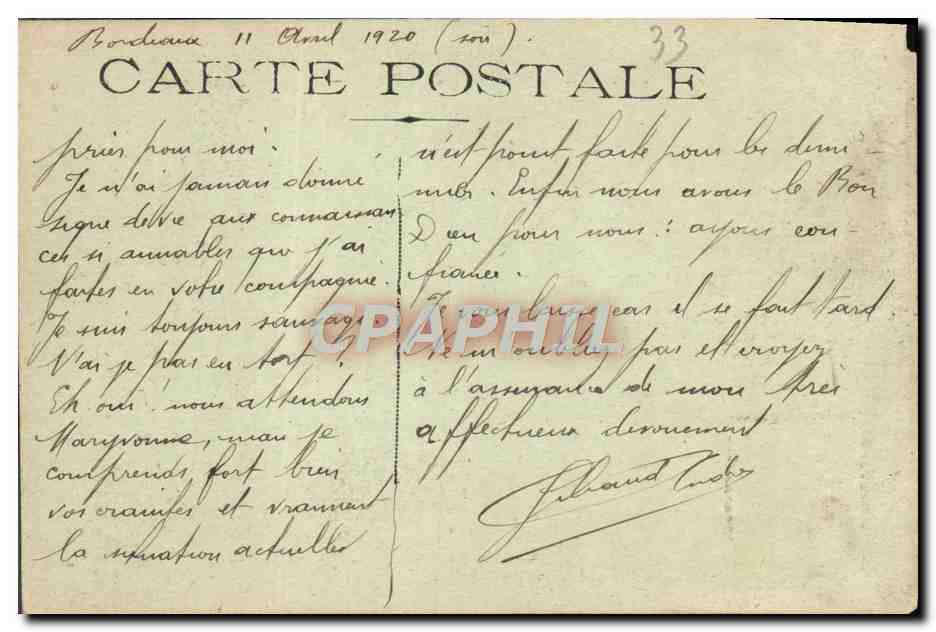 Bordeaux 11 Avril 1920 (soir).
33
CARTE POSTALE
prier pour moi.
Je n'ai jamais donné
signe de vie aux connaissan
ces si aimables que j'ai
faites en votre compagnie.
Je suis toujours sauvage
N'ai je pas eu tort ?
Eh oui ! nous attendons
Maryvonne, mais je
comprends fort bien
vos craintes et vraiment
la situation actuelle
n'est point faite pour les dimi-
nuer. Enfin nous avons le Bon
Dieu pour nous : ayons con-
fiance.
Je vous laisse car il se fait tard.
Ne m'oubliez pas et croyez
à l'assurance de mon très
affectueux dévouement
CPAPHIL